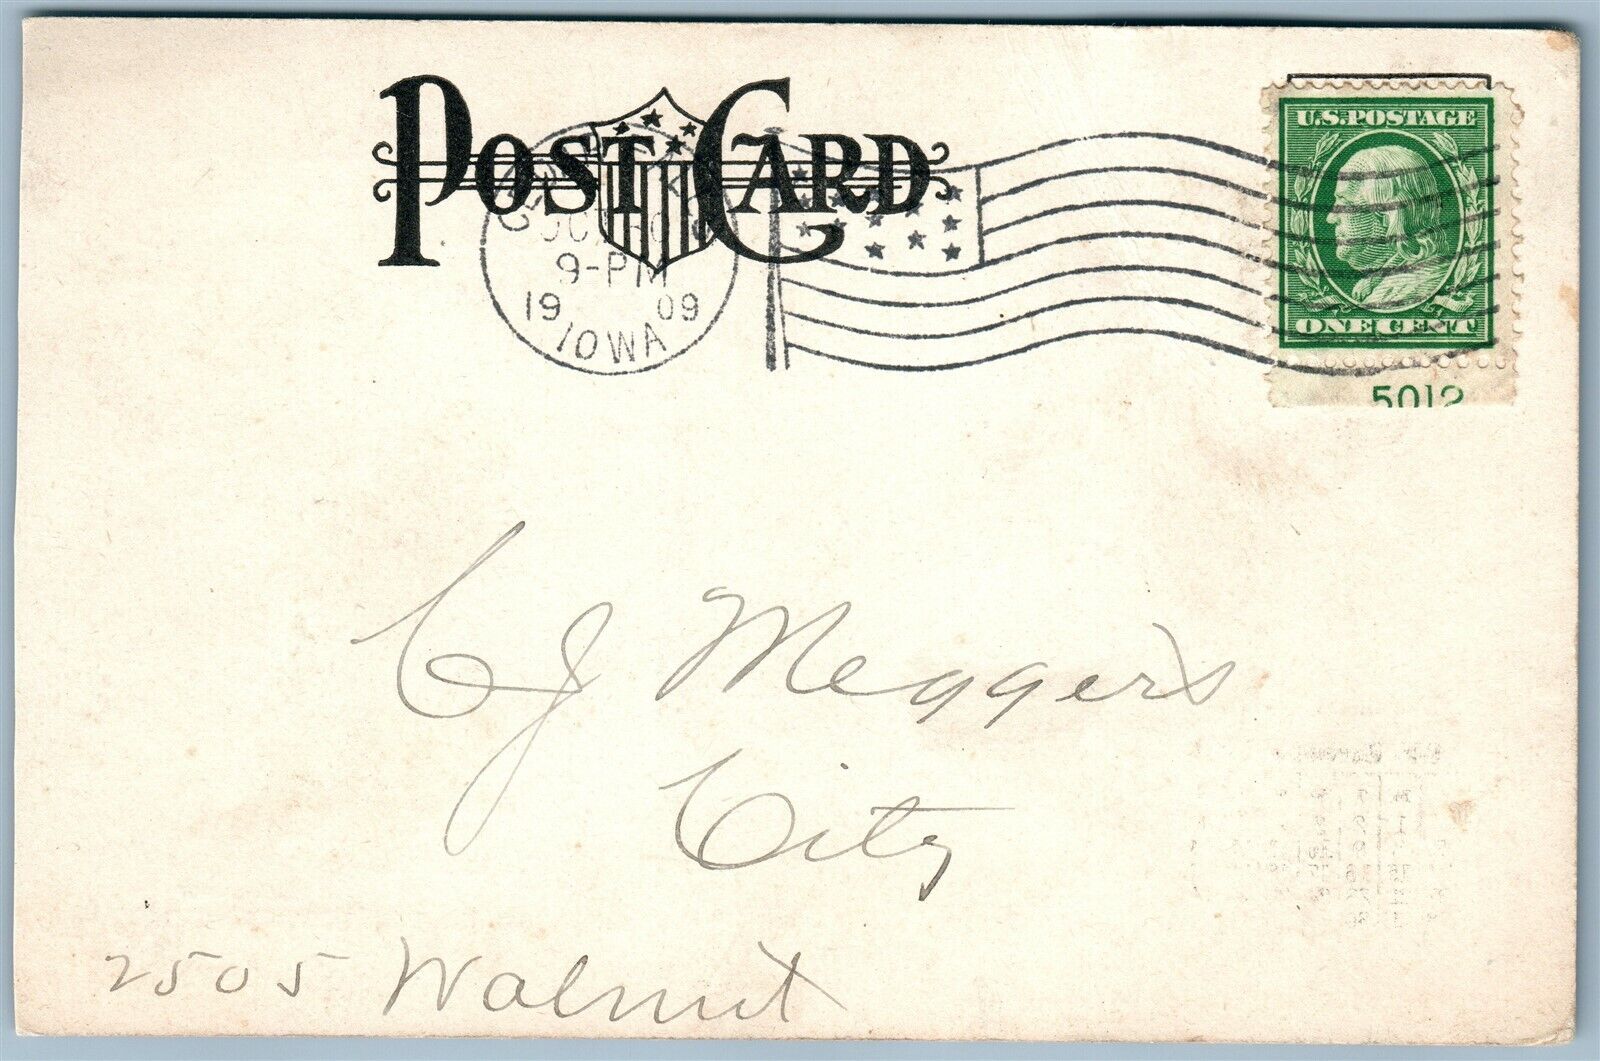 POST CARD
U.S. POSTAGE
9-PM
19 09
IOWA
ONE CENT
5012
C J Meggers
City
2505 Walnut